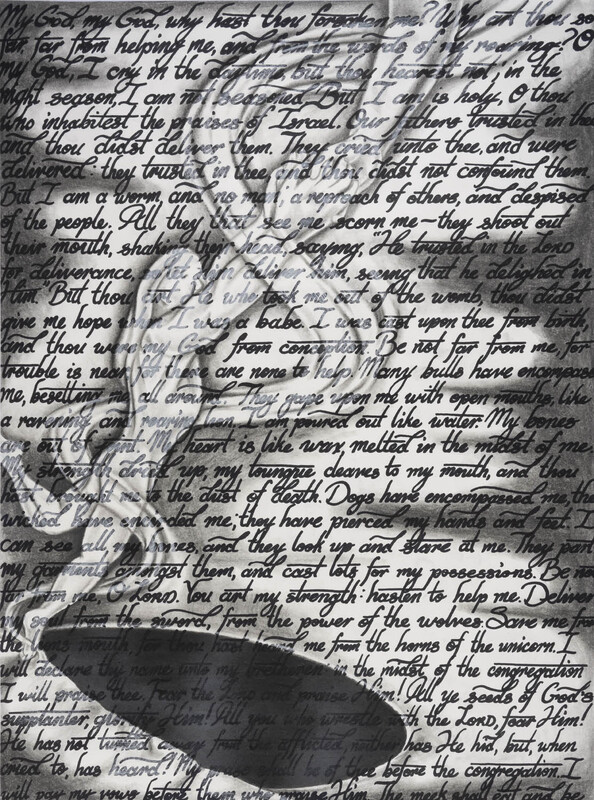 My God, my God, why hast thou forsaken me? Why art thou so
far, far from helping me, and from the words of my roaring? O
my God, I cry in the daytime, but thou hearest not; in the
night season, I am not seasoned. But I am is holy, O thou
who inhabitest the praises of Israel. Our fathers trusted in thee
and thou didst deliver them. They cried unto thee, and were
delivered: they trusted in thee, and thou didst not confound them.
But I am a worm, and no man, a reproach of others, and despised
of the people. All they that see me scorn me—they shoot out
their mouth, shaking their head, saying, "He trusted in the LORD
for deliverance, so let him deliver him, seeing that he delighed in
Him." But thou art He who took me out of the womb, thou didst
give me hope when I was a babe. I was cast upon thee from birth,
and thou were my God from conception. Be not far from me, for
trouble is near, for there are none to help. Many bulls have encompass
me, besetting me all around. They gape upon me with open mouths, like
a ravening and roaring lion. I am poured out like water. My bones
are out of joint. My heart is like wax, melted in the midst of me.
My strength dried up, my toungue cleaves to my mouth, and thou
hast brought me to the dust of death. Dogs have encompassed me, the
wicked have encircled me; they have pierced my hands and feet. I
can see all my bones, and they look up and stare at me. They part
my garments amongst them, and cast lots for my possessions. Be not
far from me, O LORD. You art my strength: hasten to help me. Deliver
my soul from the sword, from the power of the wolves. Save me from
the lions mouth, for thou hast heard me from the horns of the unicorn. I
will declare thy name unto my bretheren: in the midst of the congregation
I will praise thee. Fear the LORD and praise Him! All ye seeds of God's
supplanter, glorify Him! All you who wrestle with the LORD, fear Him!
He has not turned away from the afflicted, neither has He hid, but, when
cried to, has heard? My praise shall be of thee before the congregation. I
will pay my vows before them who praise Him. The meek shall eat and be